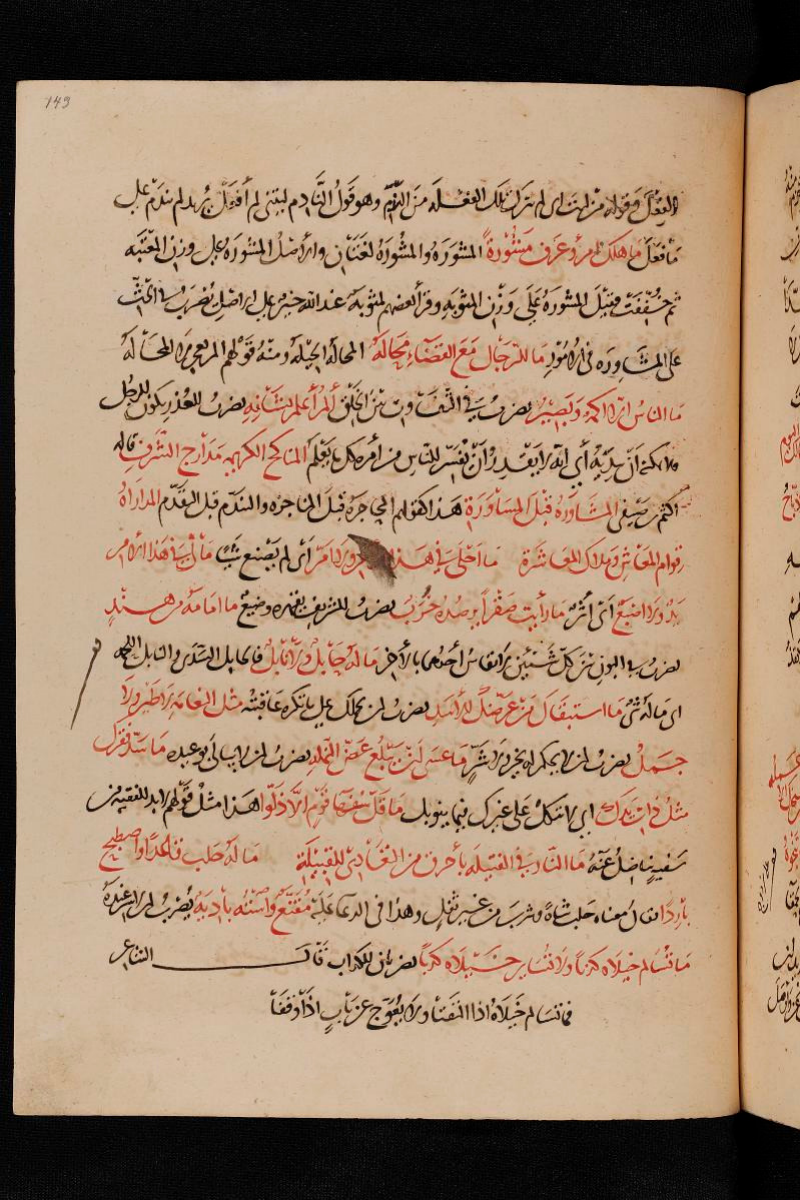 149
الفعل وقوله من ليت اى لم تترك تلك الفعلة من اللوم وهو قول النادم ليتنى لم أفعل يريد لم يندم على
ما فعل ما هلك امرؤ عرف مشورة المشورة والمشورة لغتان والاصل المشورة على وزن المعتبة
ثم خففت فقيل المشورة على وزن المثوبة وقرأ بعضهم لمثوبة عند الله خير على الاصل يضرب فى الحث
على المشاورة فى الامور ما للرجال مع القضاء محالة المحالة الحيلة ومنه قولهم المرء يعجز لا المحالة
ما الناس الا اكمه وبصير يضرب فى التفاوت بين الخلق المرأ علم بشانه يضرب للعذر يكون للرجل
ولا يمكنه ان يبديه أي انه لا يقدر أن يفسر للناس من أمره كل ما يعلم المناكح الكريمة مدارج الشرف قاله
اكثم بن صيفى المشاورة قبل المساورة هذا كقولهم المحاجزة قبل المناجزة والتندم قبل التقدم المداراة
قوام المعاش وملاك المعاشرة ما احلى فى هذا ولا امر أى لم يصنع شيئا ما لى فى هذا الامر
يد ولا اصبع أى أثر ما رأيت صقرا يرصده خرب يضرب للشريف يقهره وضيع ما امامة من هند
يضرب فى البون بين كل شيئين لا يقاس أحدهما بالآخر ما له حابل ولا نابل فالحابل السدى والنابل اللحمة
اى ما له شئ ما استبقاك من عرضك للاسد يضرب لمن يحملك على ما تكره عاقبته مثل النعامة لا طير ولا
جمل يضرب لمن لا يحكم له بخير ولا شر ما عسى أن يبلغ عض النمل يضرب لمن لا يبالى بوعيده ما سد فقرك
مثل ذات يدك اي لا تتكل على غيرك فيما ينوبك ما قل سفهاء قوم الا ذلوا هذا مثل قولهم لا بد للفقيه من
سفيه يناضل عنه ما النار فى الفتيلة بأحرق من التعادى للقبيلة ما له حلب قاعدا واصطبح
باردا قال معناه حلب شاة وشرب من غير ثفل وهذا فى الدعاء عليه مقنع واسته بادية يضرب لمن لا سر عنده
ما تسالم خيلاه كذبا ولا تساير خيلاه كذبا يضربان للكذاب قال الشاعر
فما تسالم خيلاه اذا التقتا ولا يعوج عن باب اذا وقفا